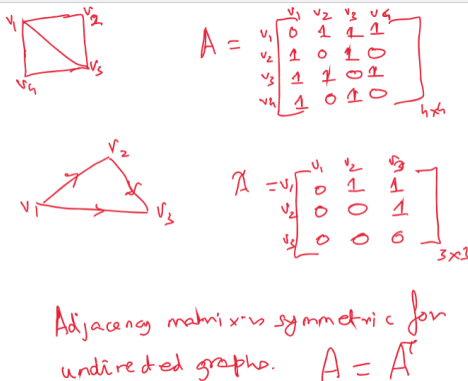 v₁ v₂
v₄ v₃
A =
v₁ v₂ v₃ v₄
v₁ 0 1 1 1
v₂ 1 0 1 0
v₃ 1 1 0 1
v₄ 1 0 1 0
4x4
v₂
v₁ v₃
A =
v₁ v₂ v₃
v₁ 0 1 1
v₂ 0 0 1
v₃ 0 0 0
3x3
Adjacency matrix is symmetric for
undirected graphs. A = Aᵀ